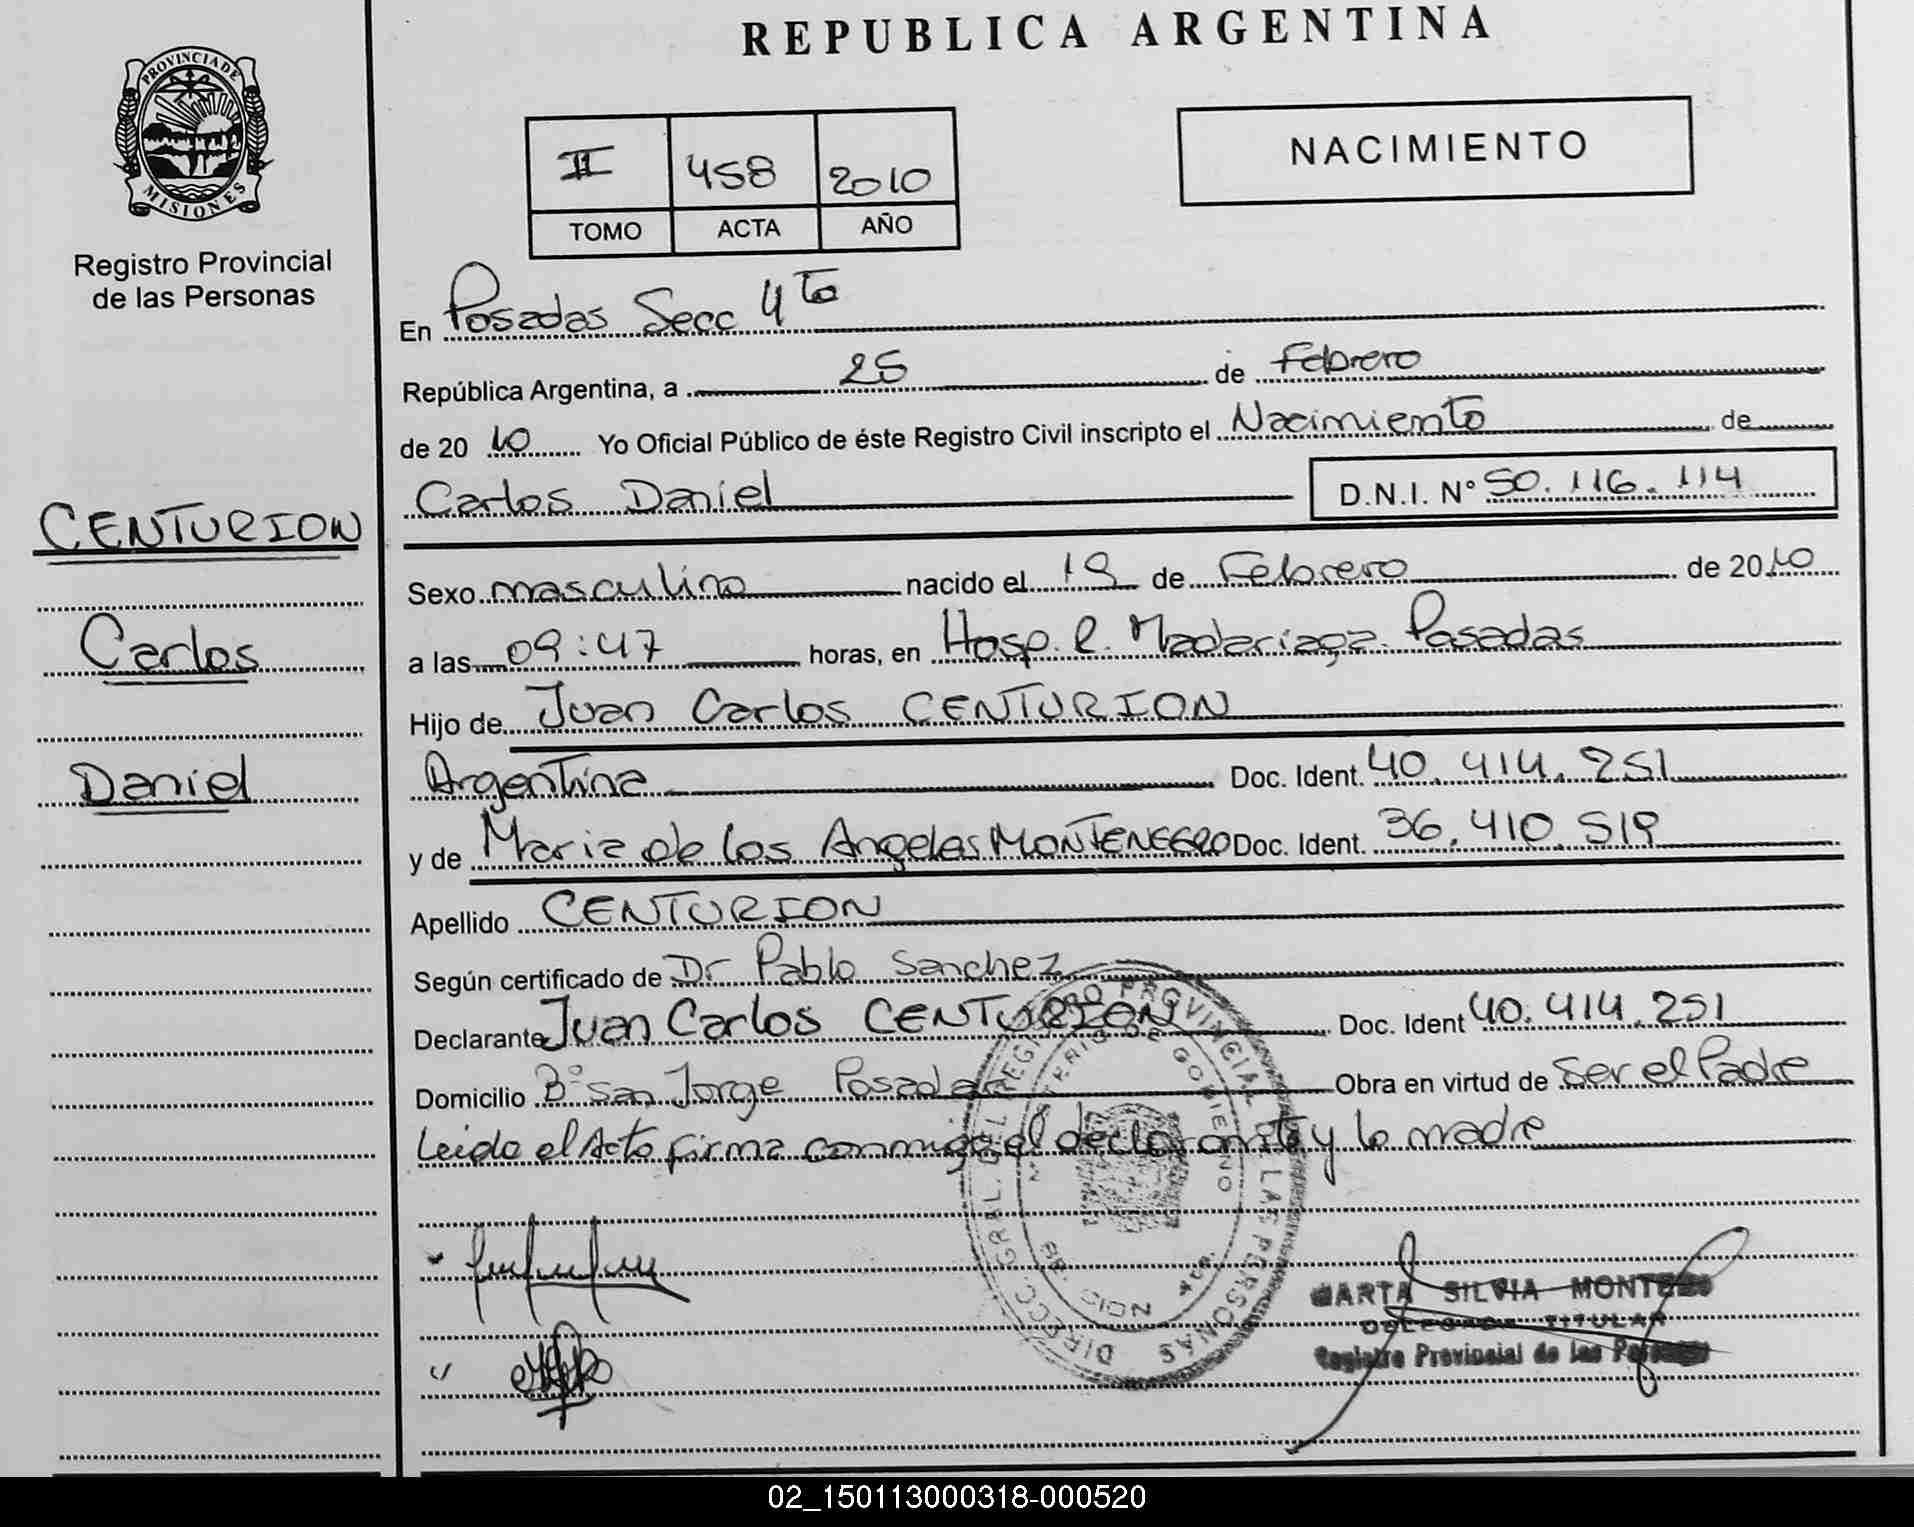 REPUBLICA ARGENTINA
PROVINCIA DE
MISIONES
Registro Provincial
de las Personas
II 458 2010
TOMO ACTA AÑO
NACIMIENTO
En Posadas Secc 4ta
República Argentina, a 25 de Febrero
de 2010 Yo Oficial Público de éste Registro Civil inscripto el Nacimiento de
Carlos Daniel D.N.I. N° 50.116.114
CENTURION
Carlos
Daniel
Sexo masculino nacido el 19 de Febrero de 2010
a las 09:47 horas, en Hosp. R. Madariaga. Posadas
Hijo de Juan Carlos CENTURION
Argentina Doc. Ident. 40.414.251
y de Maria de los Angeles MONTENEGRO Doc. Ident. 36.410.519
Apellido CENTURION
Según certificado de Dr Pablo Sanchez
Declarante Juan Carlos CENTURION Doc. Ident 40.414.251
Domicilio B° San Jorge Posadas Obra en virtud de Ser el Padre
Leida el Acta firma conmigo el declarante y la madre
DIRECC. GRAL. DEL REGISTRO PROVINCIAL DE LAS PERSONAS
GOBIERNO
SILVIA
TITULAR
Registro Provincial de las
02_150113000318-000520